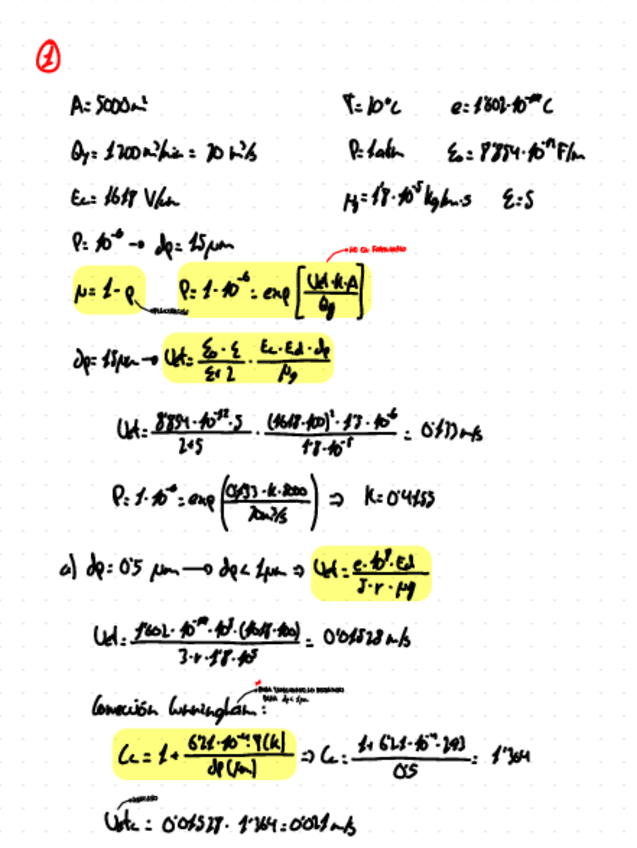 1
A = 5000 m² T = 10°C e = 1'602·10⁻¹⁹ C
Qg = 1200 m³/min = 20 m³/s P = 1 atm ε₀ = 8'854·10⁻¹² F/m
Ec = 1618 V/cm μg = 1'8·10⁻⁵ kg/m·s ε = 5
P = 10⁻⁶ → dp = 15 μm
NO EN FORMULARIO
μ = 1 - P P = 1·10⁻⁶ = exp [Uet·K·A / Qg]
dp = 15 μm → Uet = ε₀·ε / ε+2 · Ec·Ed·dp / μg
Uet = 8'854·10⁻¹²·5 / 2+5 · (1618·100)²·15·10⁻⁶ / 1'8·10⁻⁵ = 0'133 m/s
P = 1·10⁻⁶ = exp (0'133·K·5000 / 20 m³/s) ⇒ K = 0'4155
a) dp = 0'5 μm → dp < 1 μm ⇒ Uet = e·10⁸·Ed / 3·r·μg
Uet = 1'602·10⁻¹⁹·10⁸·(1618·100) / 3·r·1'8·10⁻⁵ = 0'01528 m/s
dp < 1 μm
Corrección Cunningham:
Cc = 1 + 6'21·10⁻⁴·T(K) / dp(μm) ⇒ Cc = 1 + 6'21·10⁻⁴·293 / 0'5 = 1'364
Uetc = 0'01528 · 1'364 = 0'021 m/s